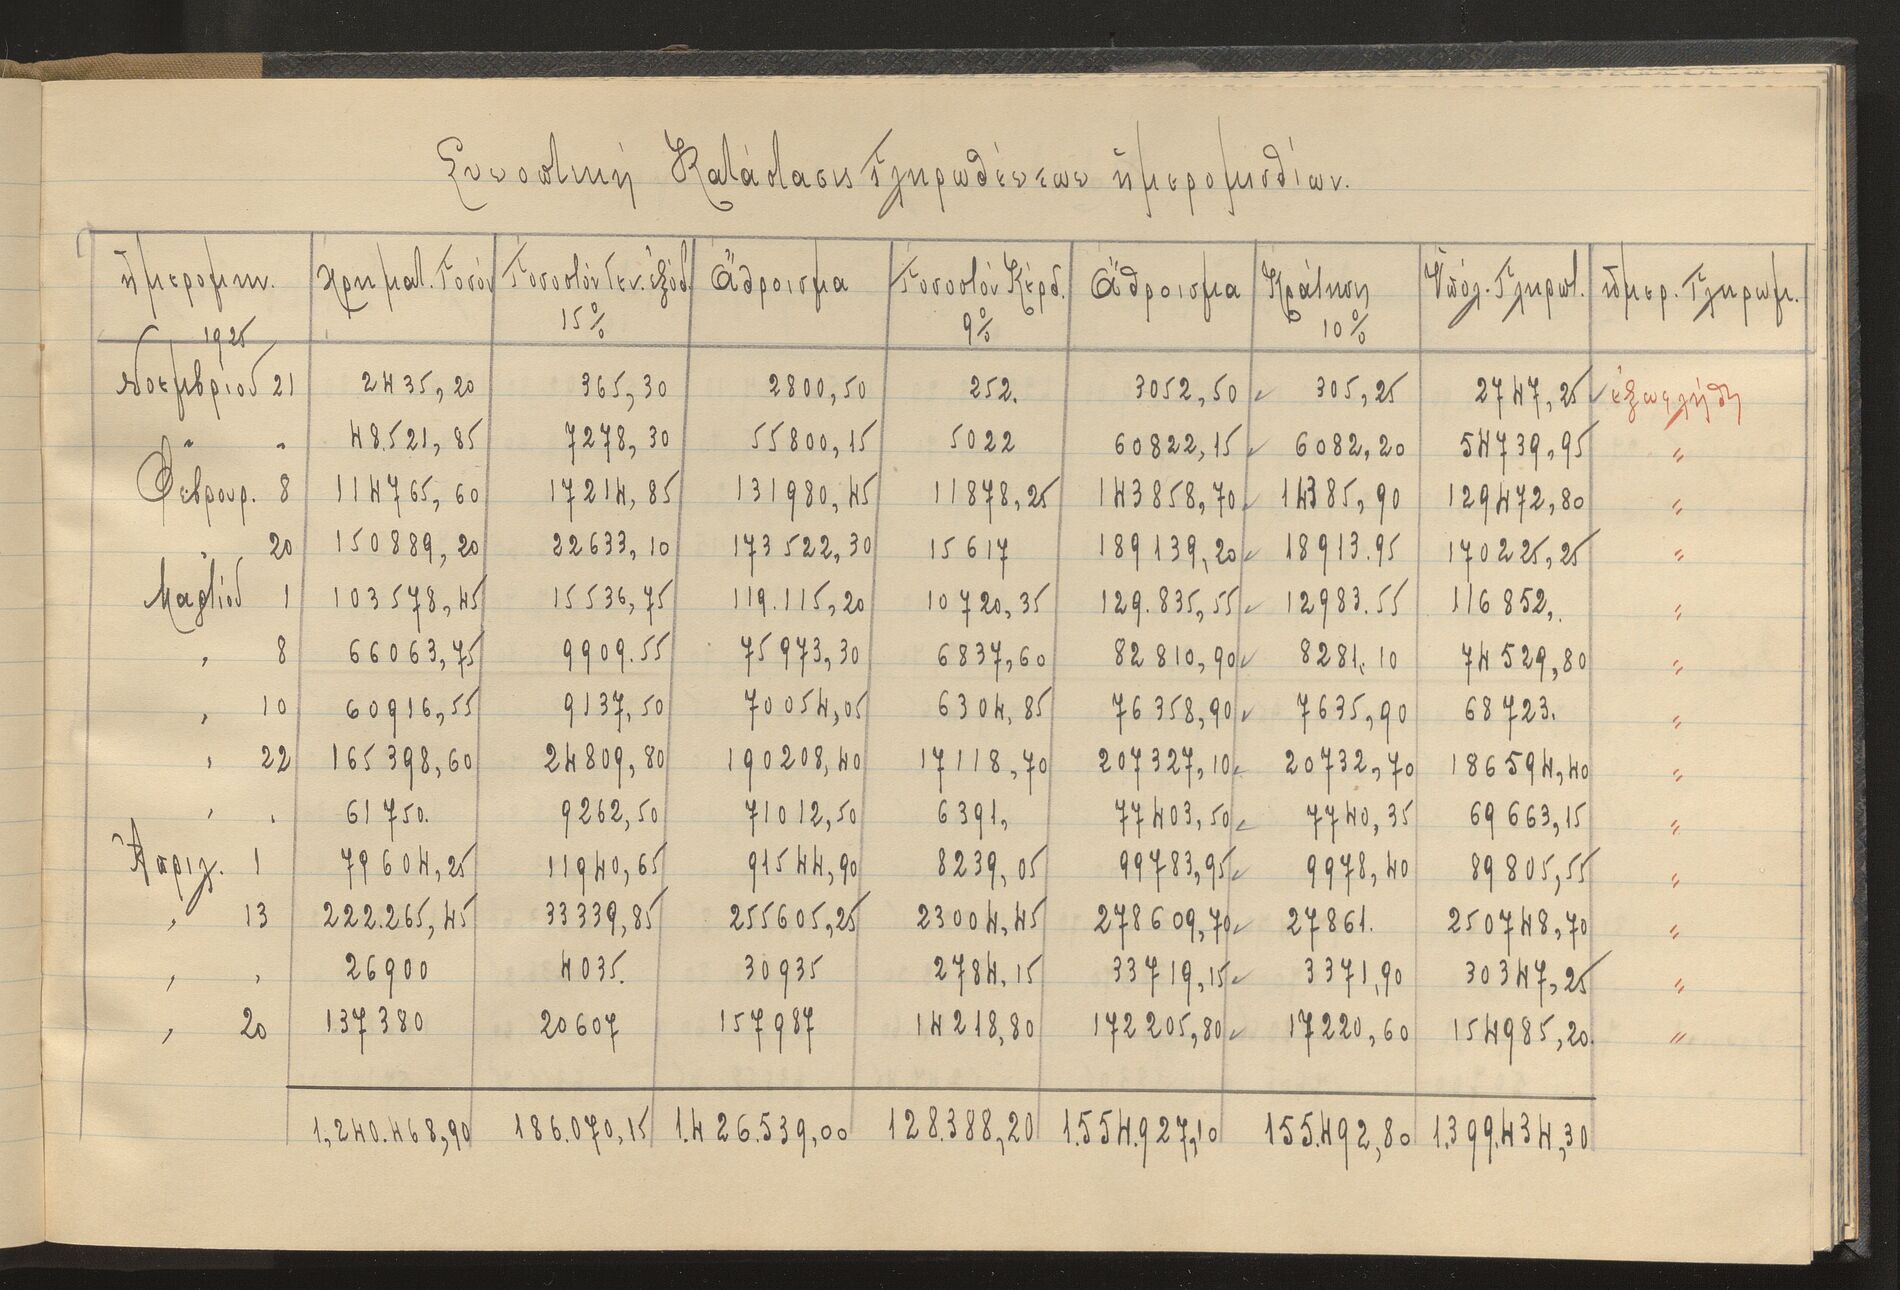 Συνοπτική Κατάστασις Πληρωθέντων ἡμερομισθίων.
ἡμερομην. Χρηματ. Ποσόν Ποσοστόν Γεν. ἐξόδ. Ἄθροισμα Ποσοστόν Κέρδ. Ἄθροισμα Κράτησις Ὑπόλ. Πληρωτ. ἡμερ. Πληρωμ.
1925 15% 9% 10%
Νοεμβρίου 21 2435,20 365,30 2800,50 252. 3052,50 305,25 2747,25 ἐξωφλήθη
" " 48.521,85 7278,30 55800,15 5022 60822,15 6082,20 54739,95 "
Φεβρουρ. 8 114765,60 17214,85 131980,45 11878,25 143858,70 14385,90 129472,80 "
" 20 150889,20 22633,10 173522,30 15617 189139,20 18913.95 170225,25 "
Μαρτίου 1 103578,45 15536,75 119.115,20 10720,35 129.835,55 12983.55 116852,. "
" 8 66063,75 9909.55 75973,30 6837,60 82810,90 8281,10 74529,80 "
" 10 60916,55 9137,50 70054,05 6304,85 76358,90 7635,90 68723. "
" 22 165398,60 24809,80 190208,40 17118,70 207327,10 20732,70 186594,40 "
" " 61750. 9262,50 71012,50 6391, 77403,50 7740,35 69663,15 "
Ἀπριλ. 1 79604,25 11940,65 91544,90 8239,05 99783,95 9978,40 89805,55 "
" 13 222.265,45 33339,85 255605,25 23004,45 278609,70 27861. 250748,70 "
" " 26900 4035. 30935 2784,15 33719,15 3371,90 30347,25 "
" 20 137380 20607 157987 14218,80 172205,80 17220,60 154985,20. "
1,240.468,90 186.070,15 1.426.539,00 128.388,20 1.554.927,10 155.492,80 1.399.434,30